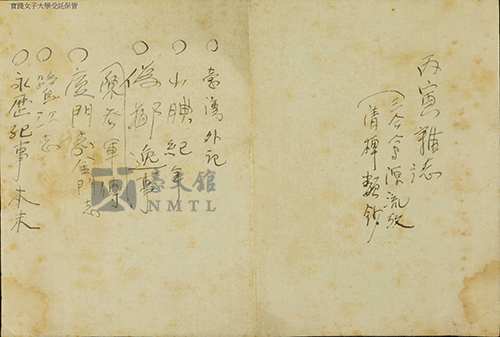 實踐女子大學受託保管
丙寅雜誌
三合会源流攷
清稗類鈔
○臺灣外記
○小腆紀年
○偽鄭逸事
陳參軍傳
○廈門志金門志
○鷺江志
○永歷紀事本末
臺文館
NMTL